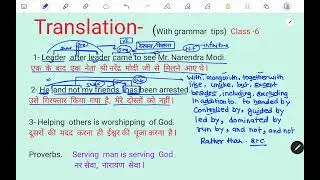 Translation- (With grammar tips) Class -6
1- Leader after leader came to see Mr. Narendra Modi.
एक के बाद एक नेता श्री नरेंद्र मोदी जी से मिलने आए थे।
2- He and not my friends has been arrested.
उसे गिरफ्तार किया गया है, मेरे दोस्तों को नहीं।
3- Helping others is worshipping of God.
दूसरों की मदद करना ही ईश्वर की पूजा करना है।
Proverbs. Serving man is serving God.
नर सेवा, नारायण सेवा।
infinitive
with, alongwith, together with
like, unlike, but, except
besides, including, excluding
in addition to, headed by
controlled by, guided by
led by, dominated by
run by, and not, and not
Rather than etc.